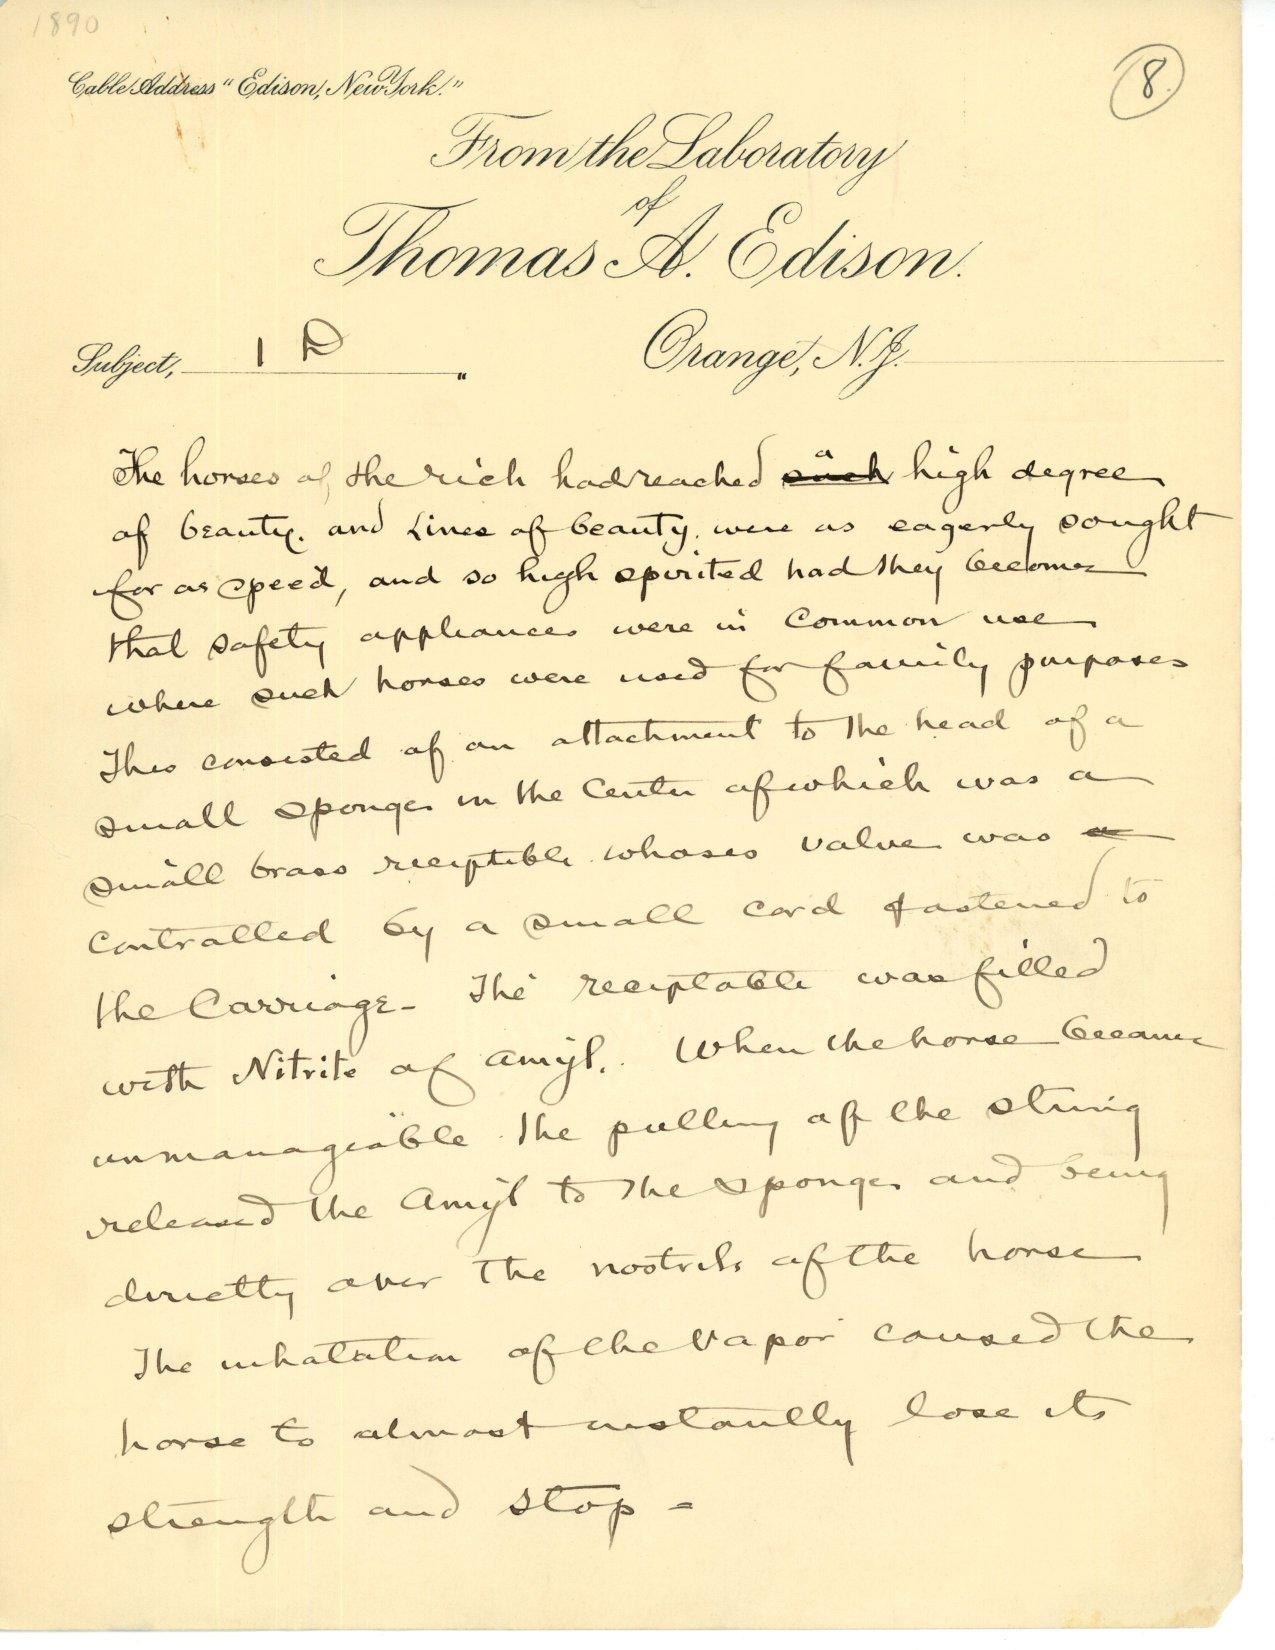 1890
8
Cable Address "Edison, New York."
From the Laboratory
of
Thomas A. Edison.
Subject, 1 D "
Orange, N.J.
The horses of the rich had reached such a high degree
of beauty. and Lines of beauty. were as eagerly sought
for as speed, and so high spirited had they become
that safety appliances were in common use
where such horses were used for family purposes
This consisted of an attachment to the head of a
small sponge in the Center of which was a
small brass reciptible whoses valve was a
controlled by a small cord fastened to
the Carriage - The reciptable was filled
with Nitrite of amyl. When the horse became
unmanagiable the pulling of the string
released the amyl to the sponge and being
directly over the nostrils of the horse
The inhalation of the vapor caused the
horse to almost instantly lose its
strength and stop -